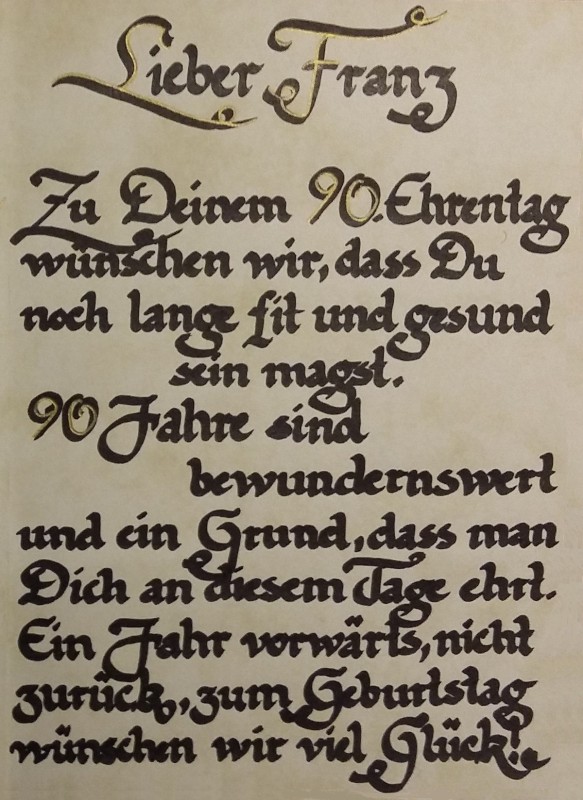 Lieber Franz
Zu Deinem 90. Ehrentag
wünschen wir, dass Du
noch lange fit und gesund
sein magst.
90 Jahre sind
bewundernswert
und ein Grund, dass man
Dich an diesem Tage ehrt.
Ein Jahr vorwärts, nicht
zurück, zum Geburtstag
wünschen wir viel Glück!